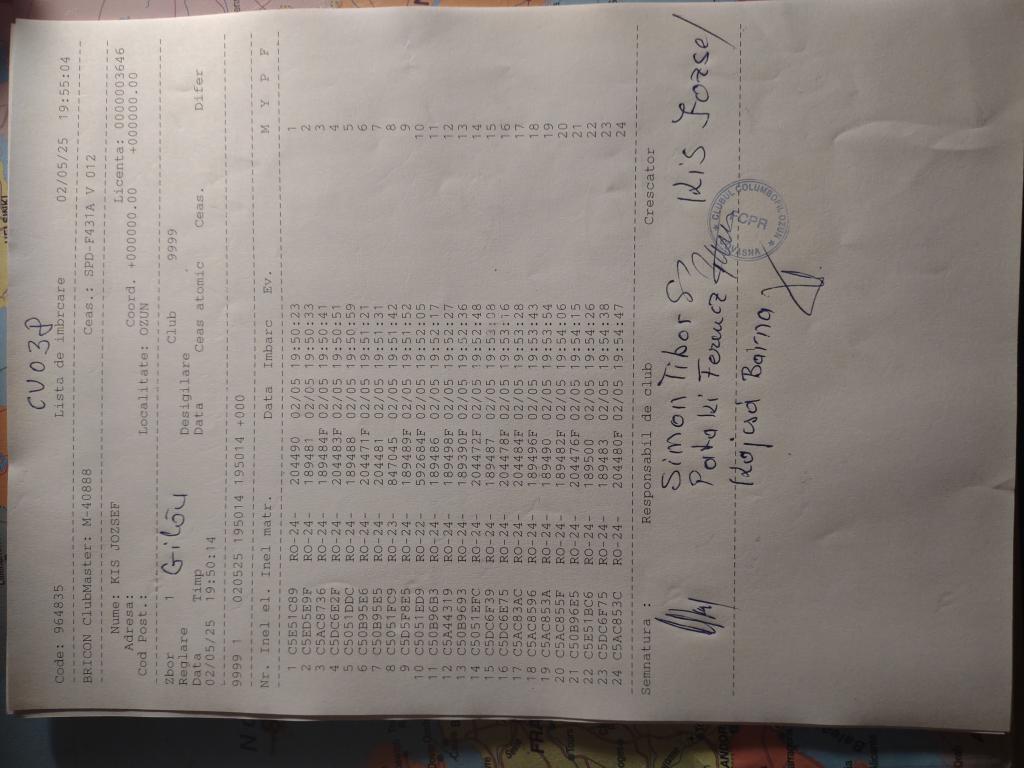 CVO 3P
Code: 964835 Lista de imbrcare 02/05/25 19:55:04
BRICON ClubMaster: M-40888 Ceas.: SPD-F431A V 012
Nume: KIS JOZSEF Licenta: 0000003646
Adresa: Coord. +000000.00 +000000.00
Cod Post.: Localitate: OZUN
Zbor 1 Gilău Club 9999
Reglare Desigilare
Data Timp Data Ceas atomic Ceas. Difer
02/05/25 19:50:14
9999 1 020525 195014 195014 +000
Nr. Inel el. Inel matr. Data Imbarc Ev. M Y P F
1 C5E51C89 RO-24- 204490 02/05 19:50:23 1
2 C5ED5E9F RO-24- 189481 02/05 19:50:33 2
3 C5AC8736 RO-24- 189484F 02/05 19:50:41 3
4 C5DC6E2F RO-24- 204483F 02/05 19:50:51 4
5 C5051DDC RO-24- 189488 02/05 19:50:59 5
6 C50B95E6 RO-24- 204471F 02/05 19:51:21 6
7 C50B95E5 RO-24- 204481 02/05 19:51:31 7
8 C5051FC9 RO-23- 847045 02/05 19:51:42 8
9 C5D5F8E5 RO-24- 189489F 02/05 19:51:52 9
10 C5051ED9 RO-22- 592684F 02/05 19:52:05 10
11 C50B96B3 RO-24- 189486 02/05 19:52:17 11
12 C5A44319 RO-24- 189498F 02/05 19:52:27 12
13 C50B9693 RO-24- 189382F 02/05 19:52:36 13
14 C5051EFC RO-24- 204472F 02/05 19:52:48 14
15 C5DC6F39 RO-24- 189487 02/05 19:53:08 15
16 C5DC6E75 RO-24- 204478F 02/05 19:53:16 16
17 C5AC83AC RO-24- 204484F 02/05 19:53:28 17
18 C5AC8596 RO-24- 189496F 02/05 19:53:43 18
19 C5AC853A RO-24- 189490 02/05 19:53:54 19
20 C5AC855F RO-24- 189482F 02/05 19:54:06 20
21 C50B96E5 RO-24- 204476F 02/05 19:54:15 21
22 C5E51BC6 RO-24- 189500 02/05 19:54:26 22
23 C5DC6F75 RO-24- 189483 02/05 19:54:38 23
24 C5AC853C RO-24- 204480F 02/05 19:54:47 24
Semnatura : Responsabil de club Crescator
Simon Tibor Kis Jozsef
Pataki Ferencz
Kajcsa Barna
CLUBUL COLUMBOFIL OZUN
CPR